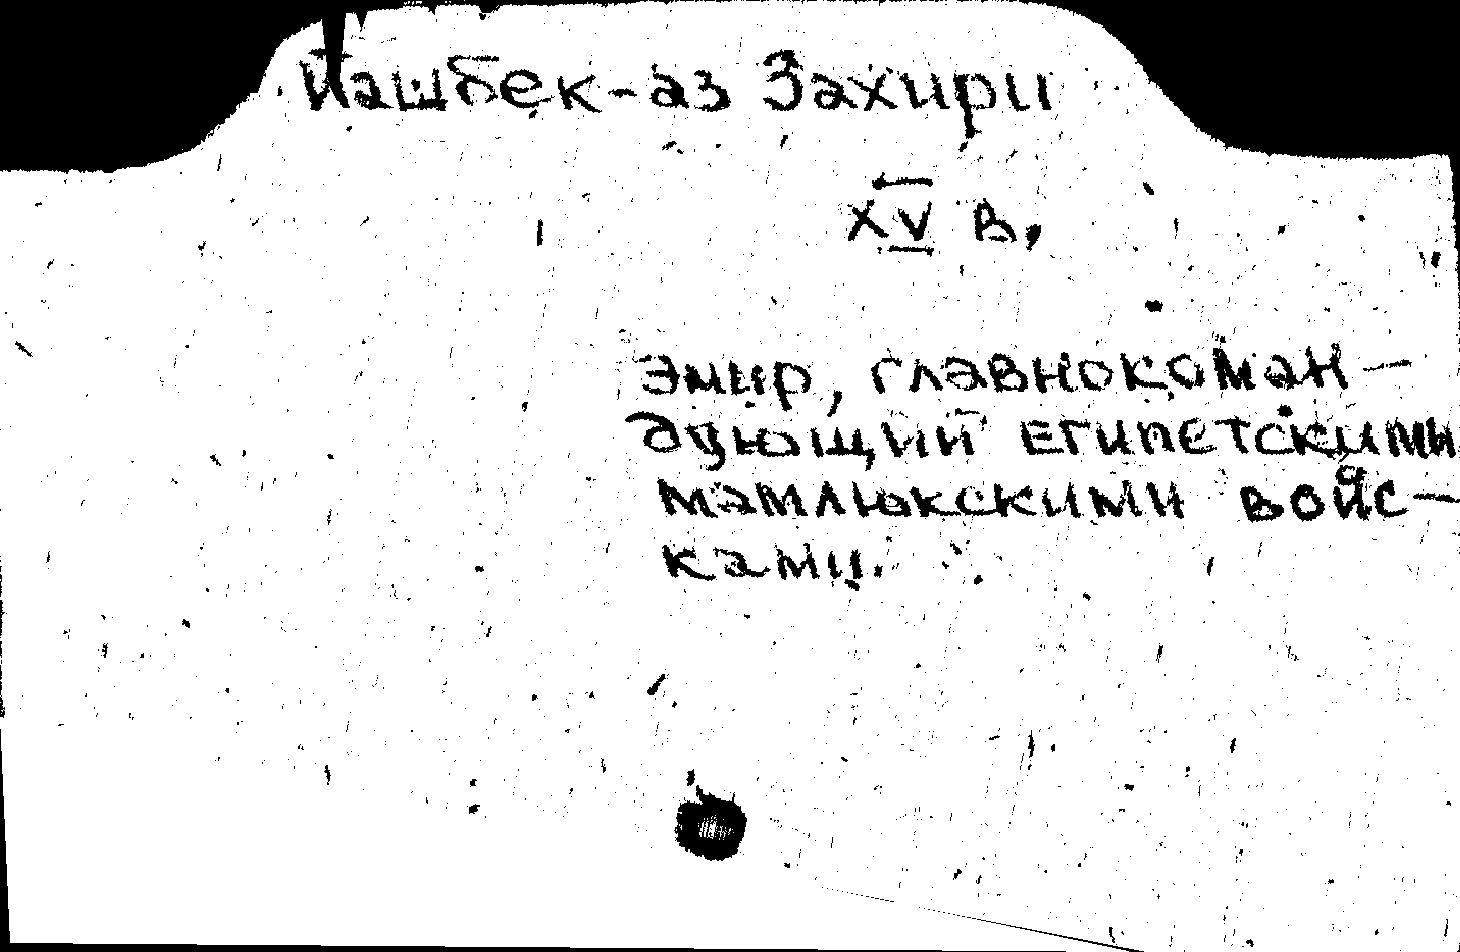 Йашбек-аз Захири
XV в.
эмир, главнокоман-
дующий египетскими
мамлюкскими войс-
ками.